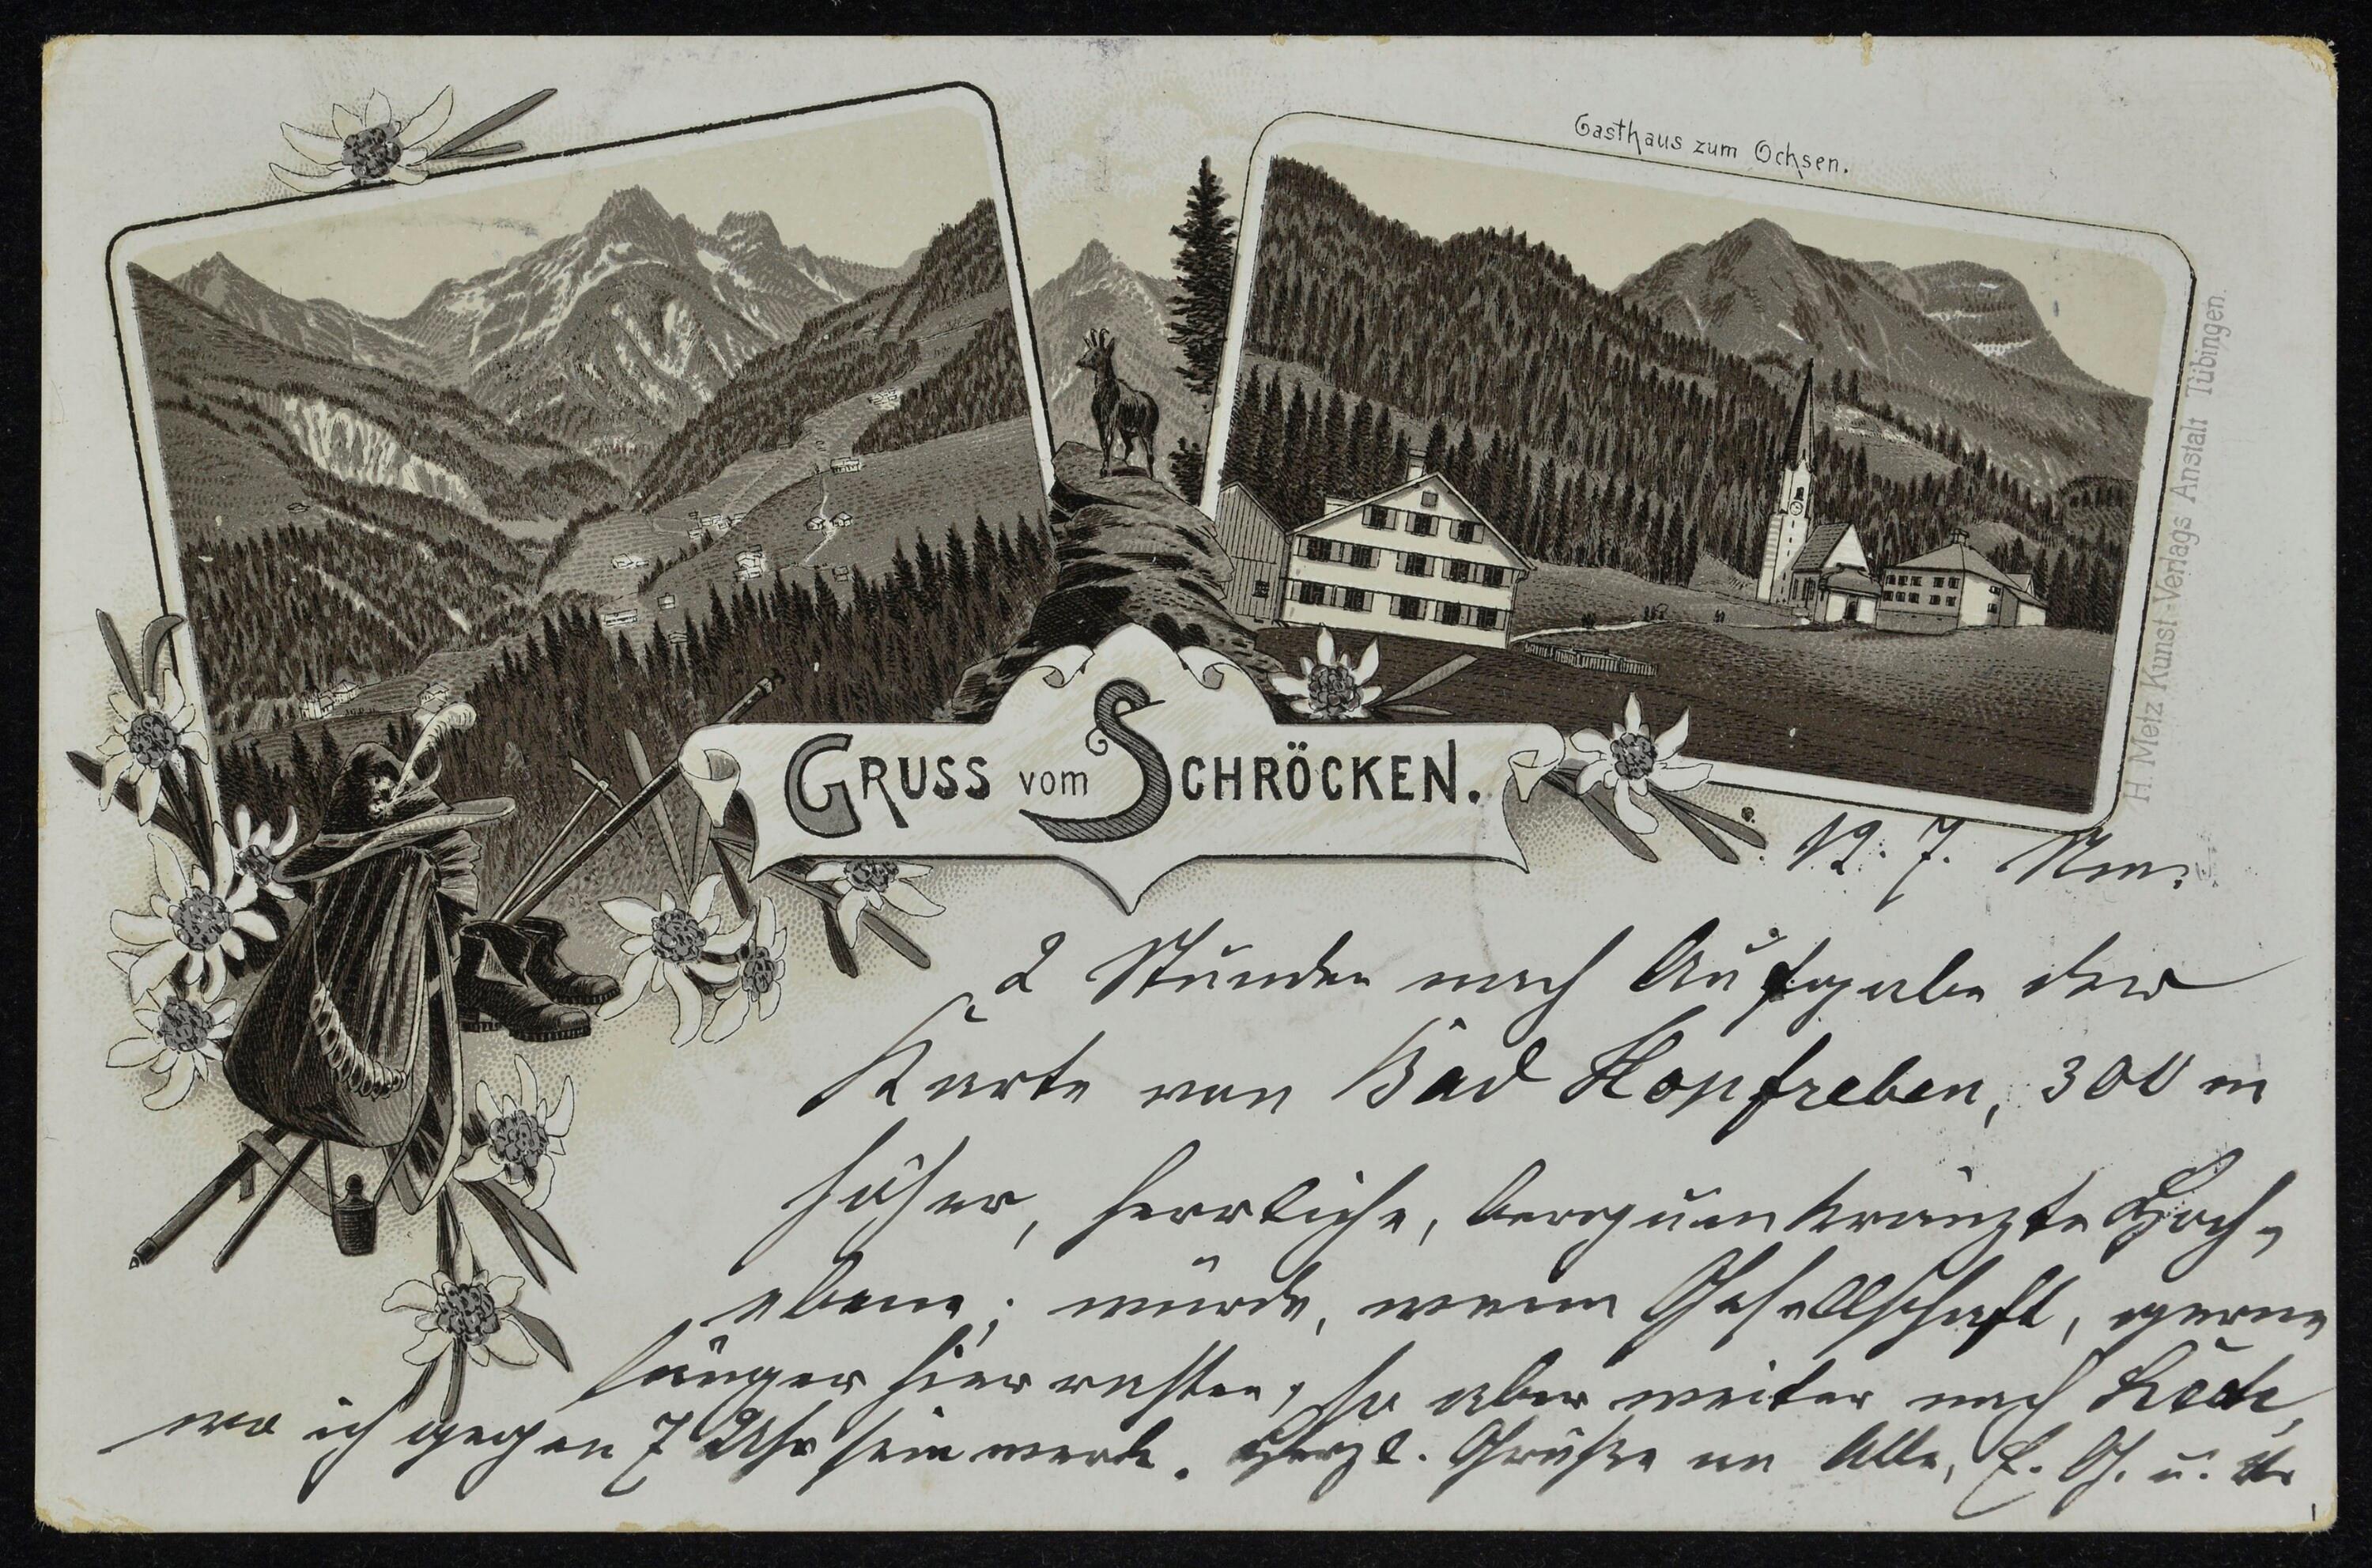 Gasthaus zum Ochsen.
H. Metz Kunst-Verlags Anstalt Tübingen.
GRUSS vom SCHRÖCKEN.
12. 7. Nm.
2 Stunden nach Aufgabe der
Karte von Bad Hopfreben, 300 m
höher, herrliche, bergumkränzte Hoch-
ebene; würde, wenn Gesellschaft, gerne
länger hier rasten, so aber weiter nach
wo ich gegen 7 Uhr sein werde. Herzl. Grüße an Alle, G. u.